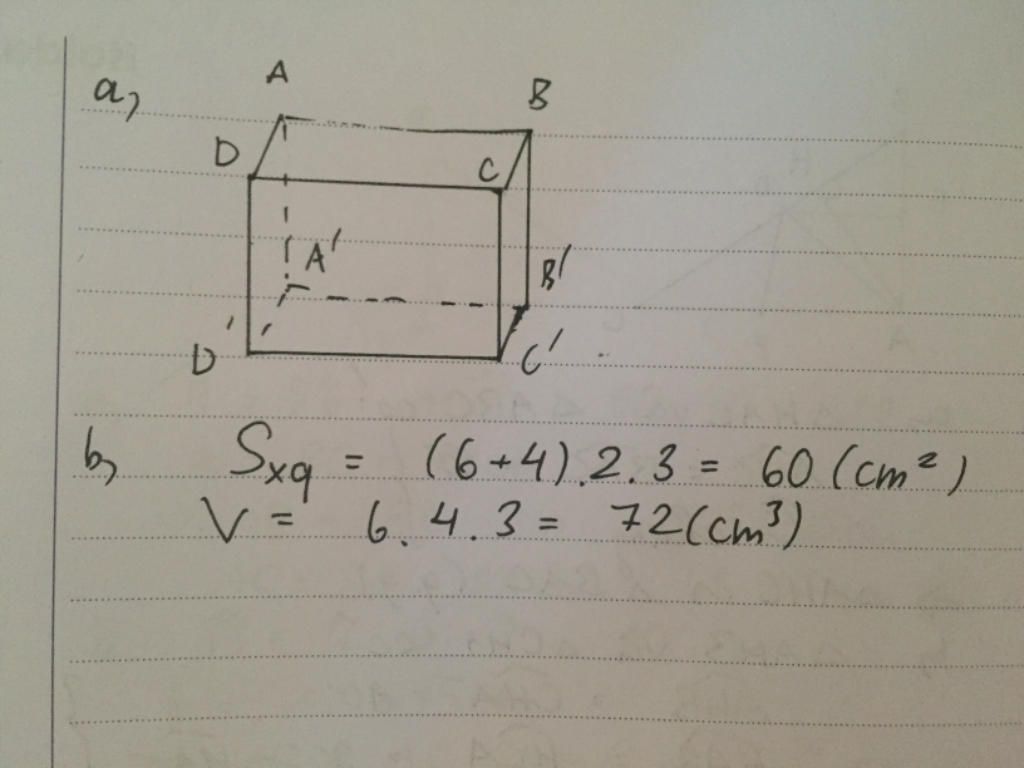 a,
A
B
D
C
A'
B'
D'
C'
b, Sxq = (6+4).2.3 = 60 (cm²)
V = 6.4.3 = 72 (cm³)